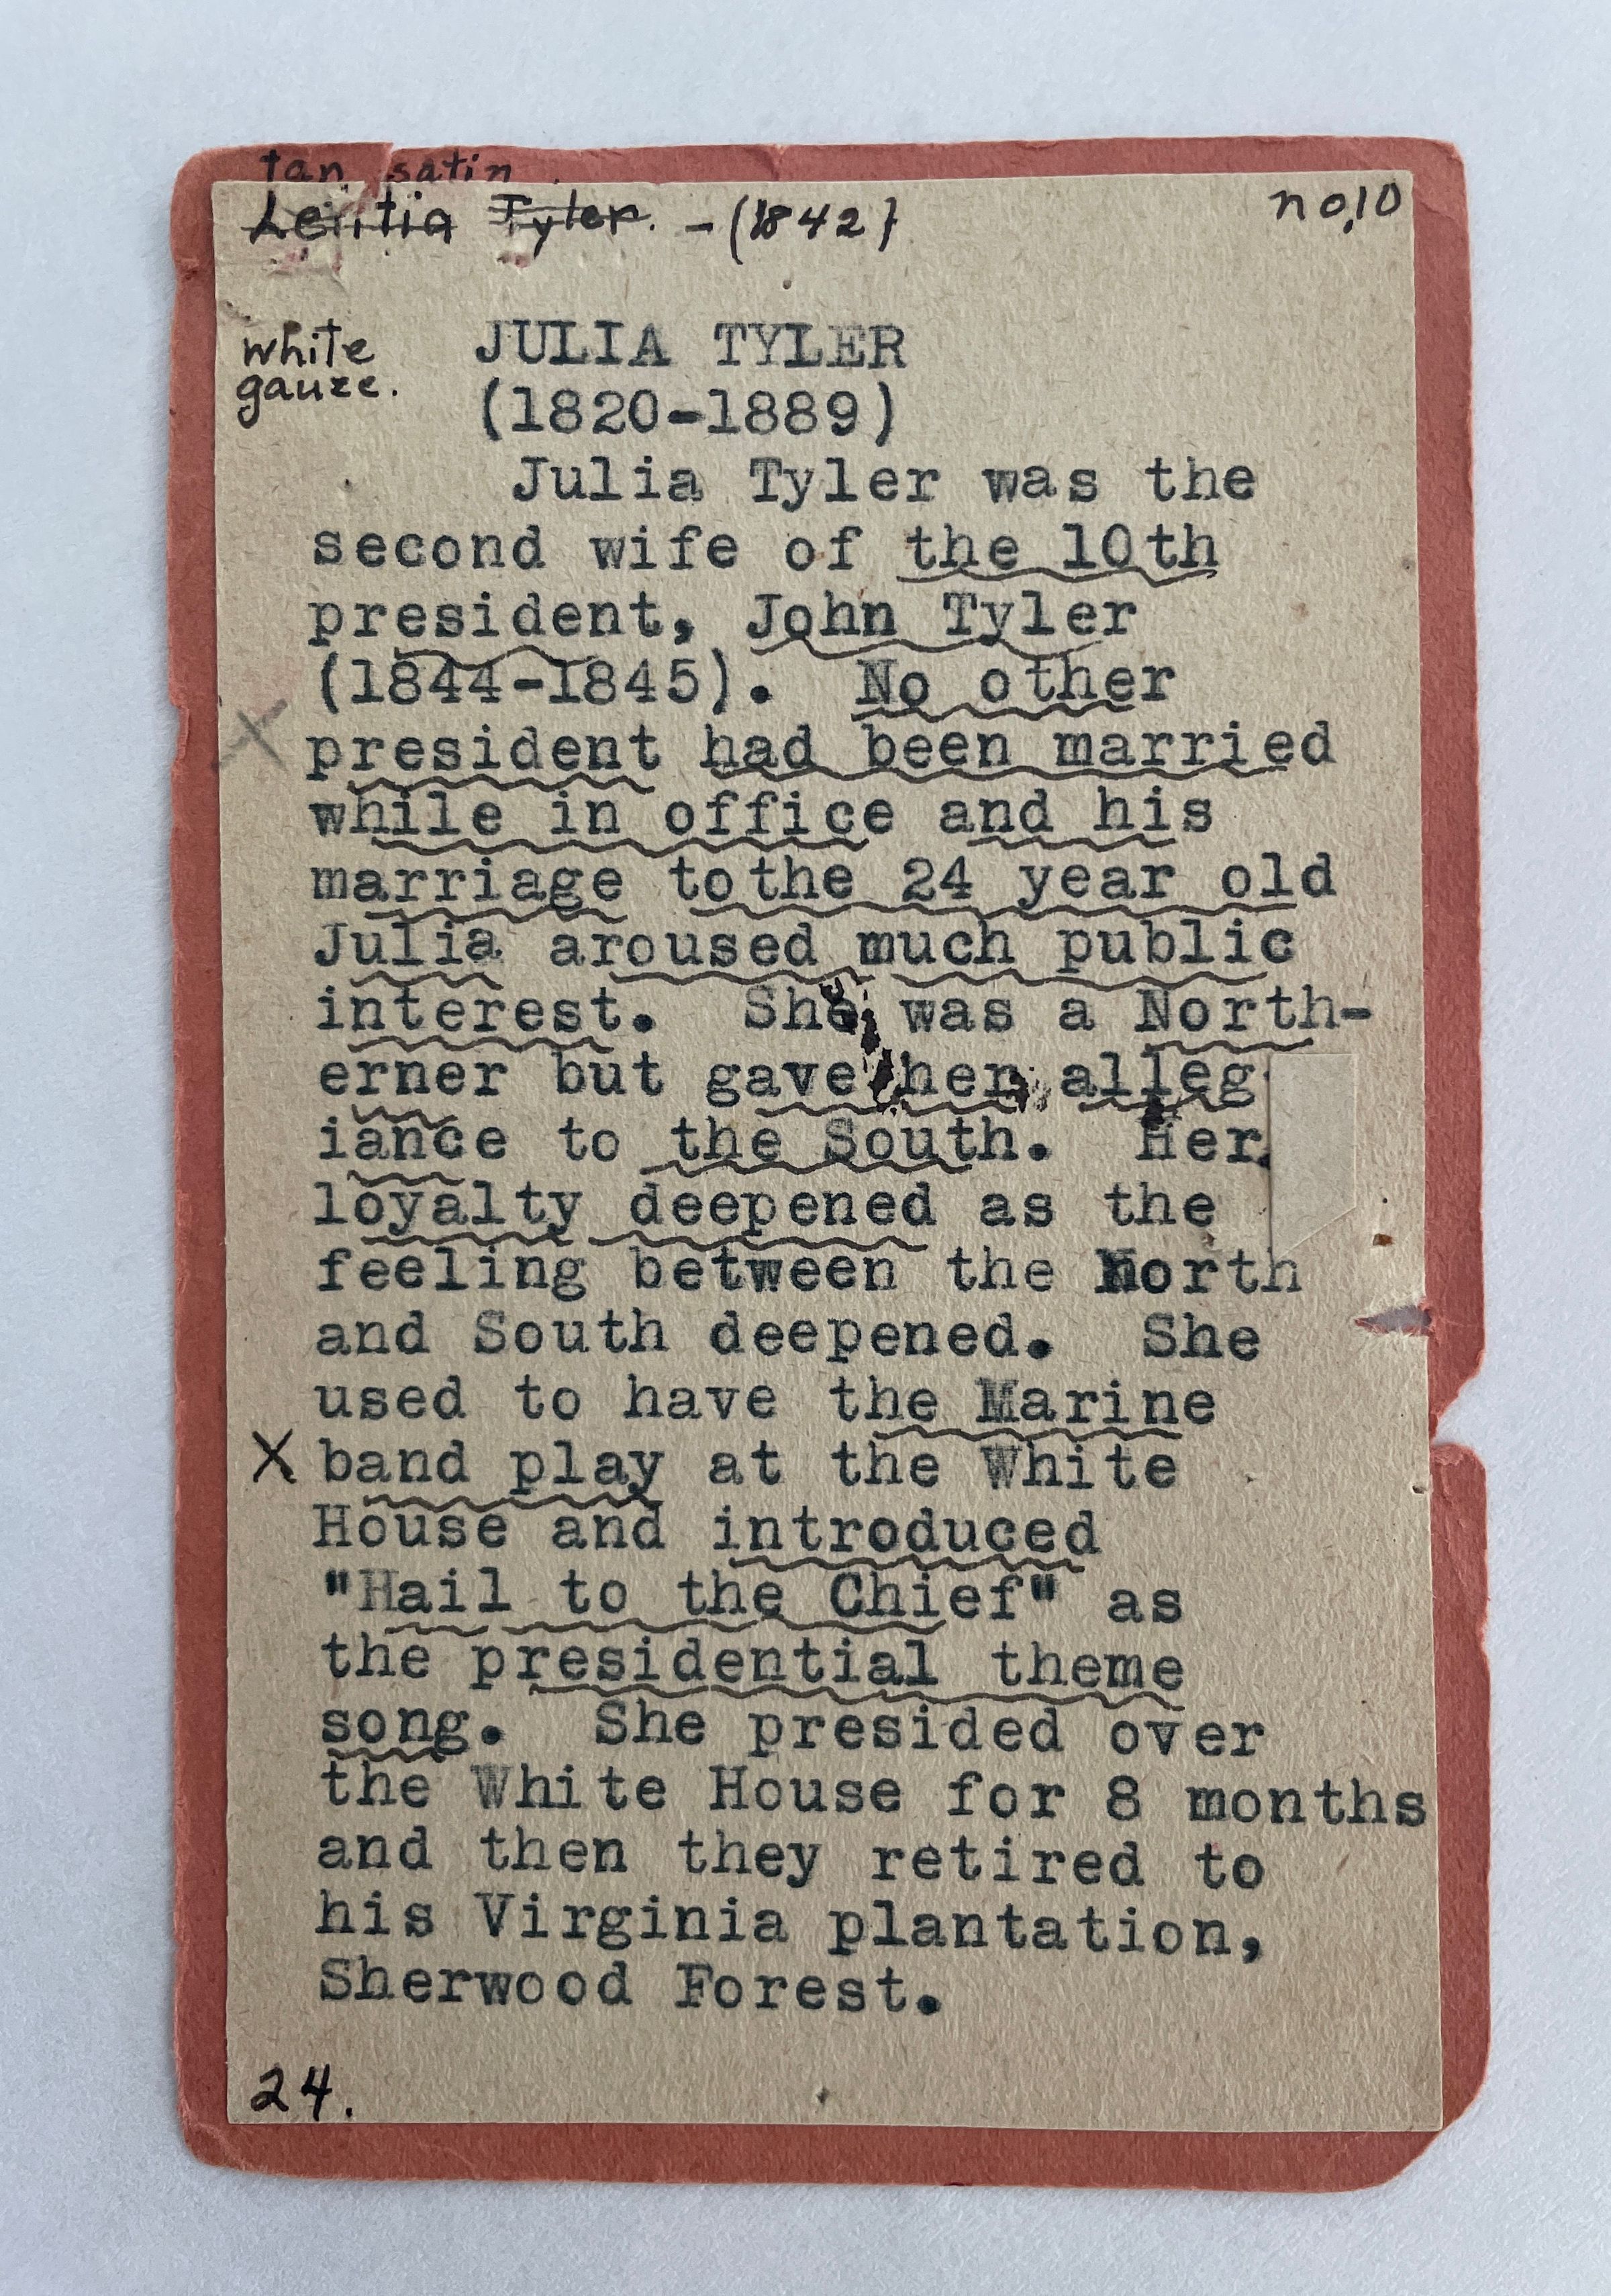 tan satin.
Letitia Tyler. - (1842)
no. 10
white
gauze.
JULIA TYLER
(1820-1889)
Julia Tyler was the
second wife of the 10th
president, John Tyler
(1844-1845). No other
president had been married
while in office and his
marriage to the 24 year old
Julia aroused much public
interest. She was a North-
erner but gave her alleg
iance to the South. Her
loyalty deepened as the
feeling between the North
and South deepened. She
used to have the Marine
X band play at the White
House and introduced
"Hail to the Chief" as
the presidential theme
song. She presided over
the White House for 8 months
and then they retired to
his Virginia plantation,
Sherwood Forest.
24.